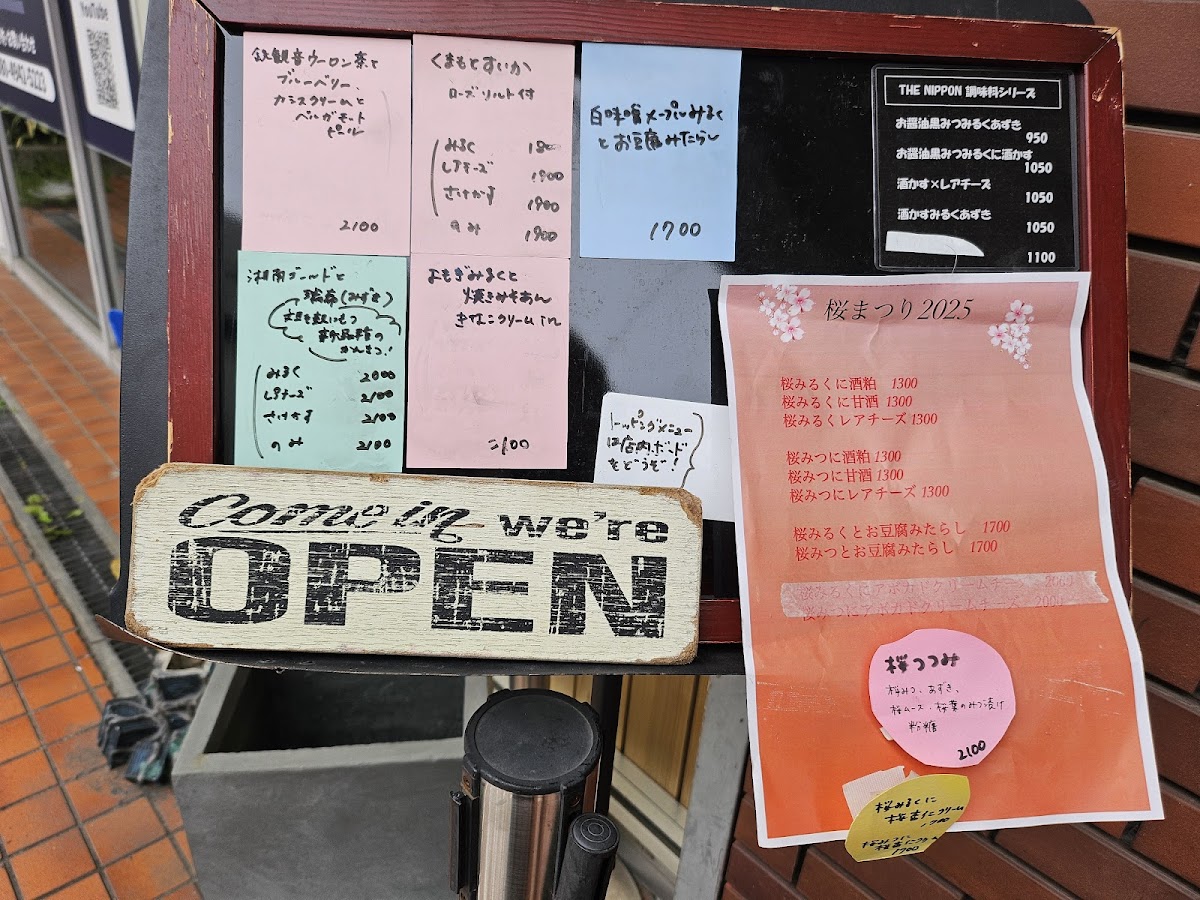 YouTube
鉄観音ウーロン茶と
ブルーベリー、
カシスクリームと
ベルガモット
ピール
2100
くまもとすいか
ローズソルト付
みるく 1800
レアチーズ 1900
さけかす 1900
のみ 1900
白味噌メープルみるく
とお豆腐みたらし
1700
THE NIPPON 調味料シリーズ
お醤油黒みつみるくあずき
950
お醤油黒みつみるくに酒かす
1050
酒かす×レアチーズ
1050
酒かすみるくあずき
1050
1100
湘南ゴールドと
(みずき)
かんきつ!
みるく 2000
レアチーズ 2100
さけかす 2100
のみ 2100
よもぎみるくと
焼きみそあん
きなこクリームin
2100
トッピングメニュー
は店内ボード
をどうぞ!
Come in we're
OPEN
桜まつり2025
桜みるくに酒粕 1300
桜みるくに甘酒 1300
桜みるくレアチーズ 1300
桜みつに酒粕 1300
桜みつに甘酒 1300
桜みつにレアチーズ 1300
桜みるくとお豆腐みたらし 1700
桜みつとお豆腐みたらし 1700
桜みるくにアボカドクリームチーズ 2000
桜みつにアボカドクリームチーズ 2000
桜つつみ
桜みつ、あずき、
桜ムース、桜葉のみつ漬け
粉糖
2100
桜みるくに
クリーム
1700
1700